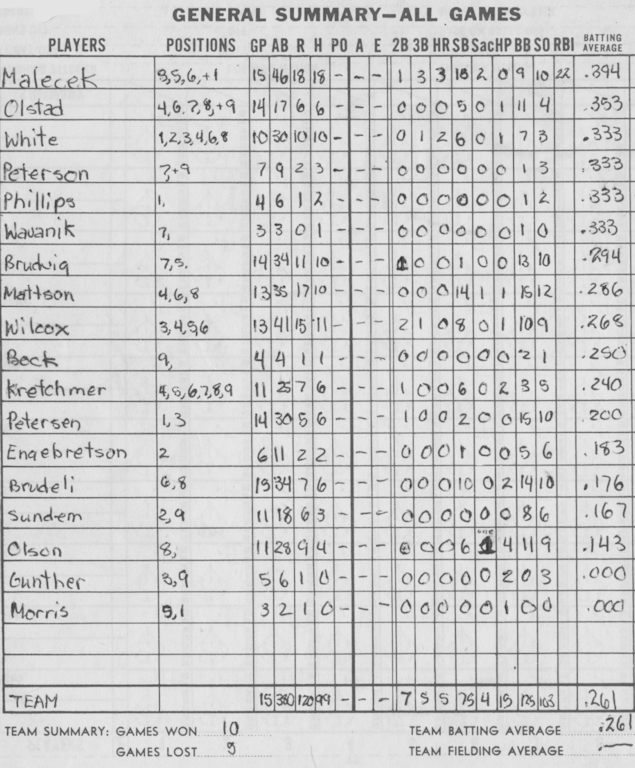 GENERAL SUMMARY—ALL GAMES
PLAYERS POSITIONS GP AB R H PO A E 2B 3B HR SB Sac HP BB SO RBI BATTING AVERAGE
Malecek 3,5,6,+1 15 46 18 18 - - - 1 3 3 18 2 0 9 10 22 .394
Olstad 4,6,7,8,+9 14 17 6 6 - - - 0 0 0 5 0 1 11 4 .353
White 1,2,3,4,6,8 10 30 10 10 - - - 0 1 2 6 0 1 7 3 .333
Peterson 7+9 7 9 2 3 - - - 0 0 0 0 0 0 1 3 .333
Phillips 1, 4 6 1 2 - - - 0 0 0 0 0 0 1 2 .333
Wavanik 7, 3 3 0 1 - - - 0 0 0 0 0 0 1 0 .333
Brudwig 7,5. 14 34 11 10 - - - 1 0 0 1 0 0 13 10 .294
Mattson 4,6,8 13 35 17 10 - - - 0 0 0 14 1 1 15 12 .286
Wilcox 3,4,5,6 13 41 15 11 - - - 2 1 0 8 0 1 10 9 .268
Beck 9, 4 4 1 1 - - - 0 0 0 0 0 0 2 1 .250
Kretchmer 4,5,6,7,8,9 11 25 7 6 - - - 1 0 0 6 0 2 3 5 .240
Petersen 1,3 14 30 5 6 - - - 1 0 0 2 0 0 15 10 .200
Engebretson 2 6 11 2 2 - - - 0 0 0 1 0 0 5 6 .183
Brudeli 6,8 15 34 7 6 - - - 0 0 0 10 0 2 14 10 .176
Sundem 2,9 11 18 6 3 - - - 0 0 0 0 0 0 8 6 .167
Olson 8, 11 28 9 4 - - - 0 0 0 6 one 1 4 11 9 .143
Gunther 3,9 5 6 1 0 - - - 0 0 0 0 0 2 0 3 .000
Morris 5,1 3 2 1 0 - - - 0 0 0 0 0 1 0 0 .000
TEAM 15 380 120 99 - - - 7 5 5 75 4 15 125 163 .261
TEAM SUMMARY: GAMES WON 10 TEAM BATTING AVERAGE .261
GAMES LOST 5 TEAM FIELDING AVERAGE .—